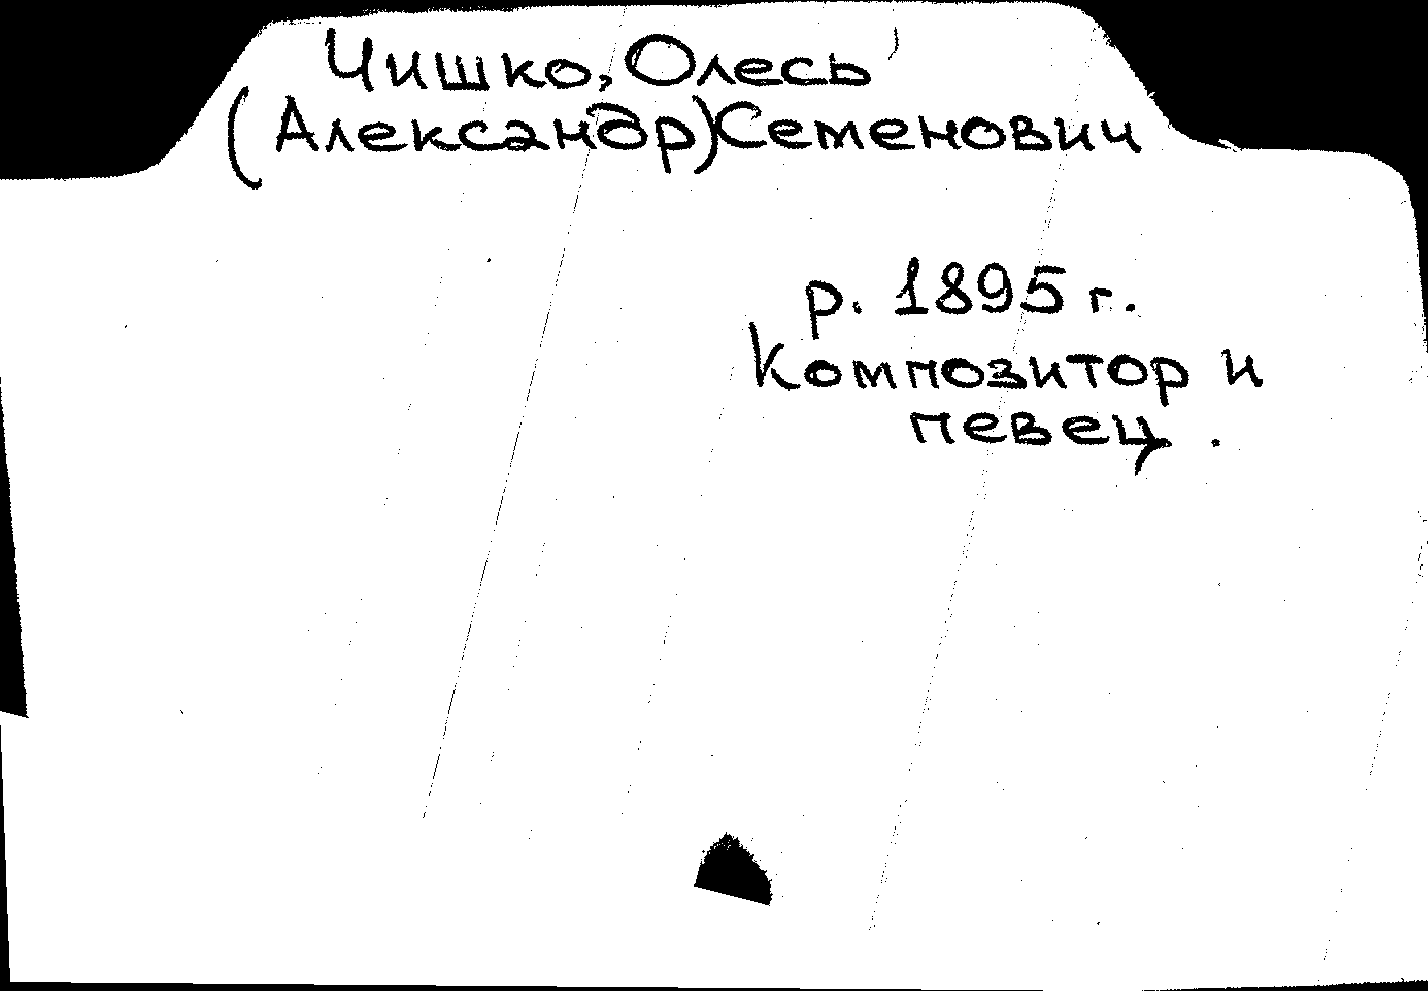 Чишко, Олесь
(Александр) Семенович
р. 1895 г.
Композитор и
певец.